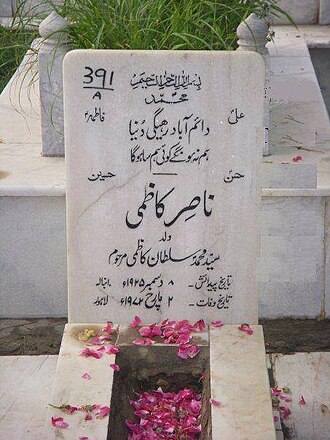 391
A
بسم اللہ الرحمن الرحیم
محمدؐ
علیؑ
فاطمہؑ
دائم آباد رہیگی دُنیا
ہم نہ ہونگے کوئی ہم سا ہوگا
حسنؑ
حسینؑ
ناصِر کاظمی
ولد
سیّد محمد سلطان کاظمی مرحوم
تاریخ پیدائش - ۸ دسمبر ۱۹۲۵ء انبالہ
تاریخ وفات - ۲ مارچ ۱۹۷۲ء لاہور